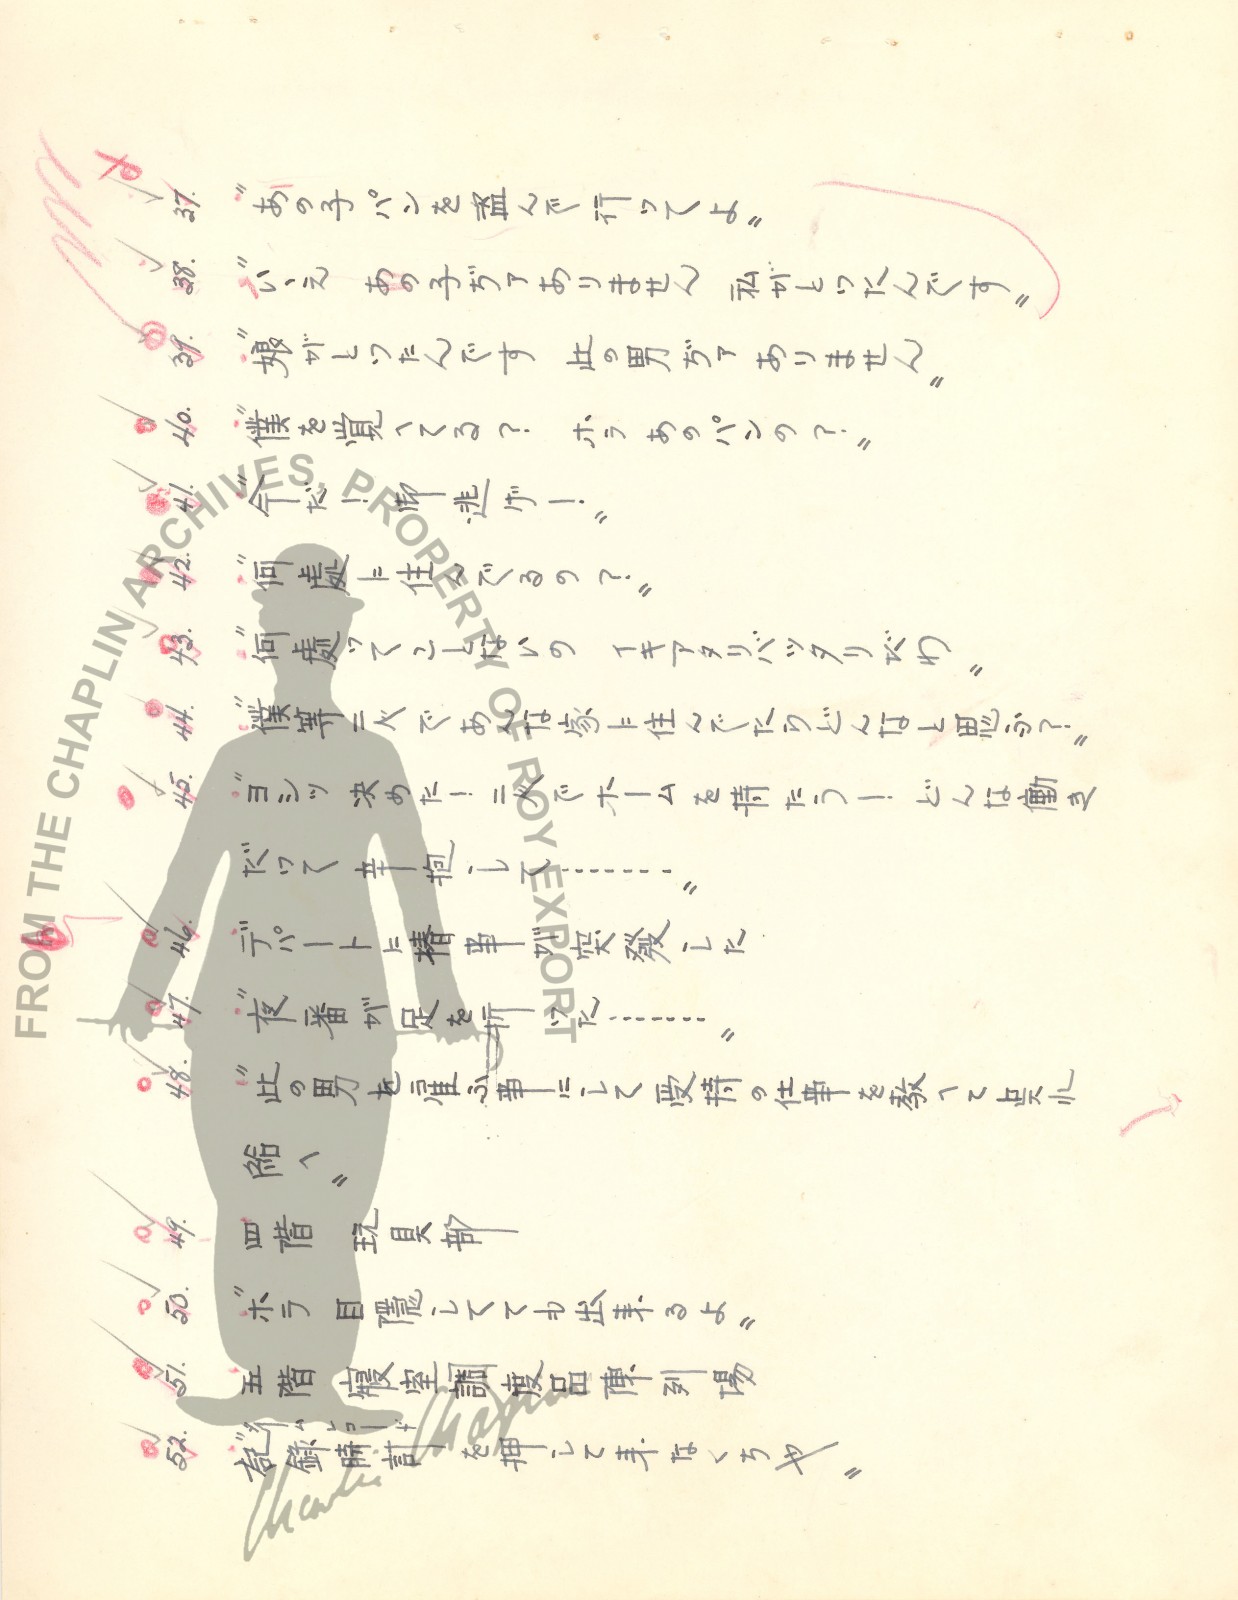 37. "あの子パンを盗んで行ってよ"
38. "いえ あの子ぢァありません 私がとったんです"
39. "娘がとったんです 此の男ぢァありません"
40. "僕を覚へてる? ホラあのパンの?"
41. "今だ! 御逃げ!"
42. "何處に住んでるの?"
43. "何處ってことないの イキアタリバッタリだわ"
44. "僕等二人であんな家に住んでたらどんなと思ふ?"
45. "ヨシッ 決めた! 二人でホームを持たう! どんな働き
だって辛抱して………"
46. デパートに椿事が突發した
47. "夜番が足を折った………"
48. "此の男を雇ふ事にして受持の仕事を教へて呉れ
給へ"
49. 四階 玩具部
50. "ホラ 目隠してても出来るよ"
51. 五階 寝室調度品陳列場
タイムレコード
52. "記録時計を押して来なくちや"
FROM THE CHAPLIN ARCHIVES, PROPERTY OF ROY EXPORT
Charlie Chaplin